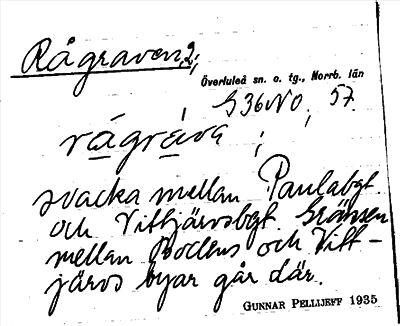 Rågraven, 2,
Överluleå sn. o. tg., Norrb. län
G36NO, 57.
rågráva ;
svacka mellan Paulabgt.
och Vittjärvsbgt. Gränsen
mellan Bodens och Vitt-
järvs byar går där.
GUNNAR PELLIJEFF 1935